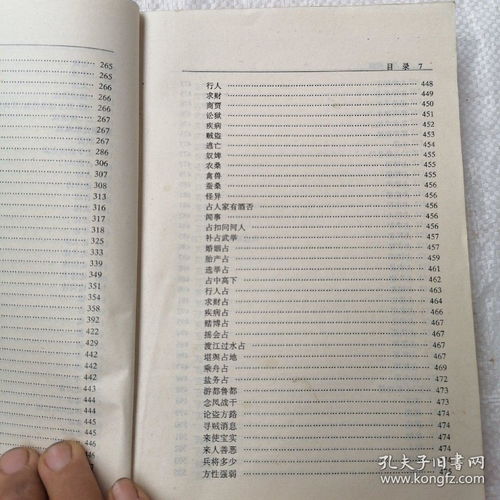 265
265
266
266
266
267
267
286
306
307
308
313
316
317
318
325
339
349
351
354
358
392
422
429
442
442
442
443
444
445
446
446
目录 7
行人 448
求财 449
商贾 450
讼狱 451
疾病 452
贼盗 453
逃亡 454
奴婢 455
农桑 455
禽兽 455
蚕桑 456
怪异 456
占人家有酒否 456
闻事 456
占扣问何人 456
补占武举 457
婚姻占 457
胎产占 459
选举占 461
占中高下 462
行人占 463
求财占 464
疾病占 466
赌博占 467
摇会占 467
渡江过水占 467
堪舆占地 467
乘舟占 469
盐务占 472
游都鲁都 473
念凤战干 473
论盗方路 474
寻贼消息 474
来使宝实 474
来人善恶 474
兵将多少
方性强弱 475
孔夫子旧书网